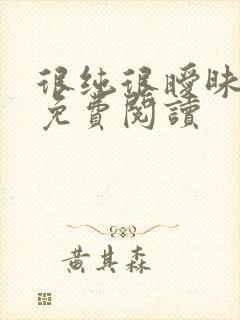 很纯很曖昧
免費閱讀
黄其森